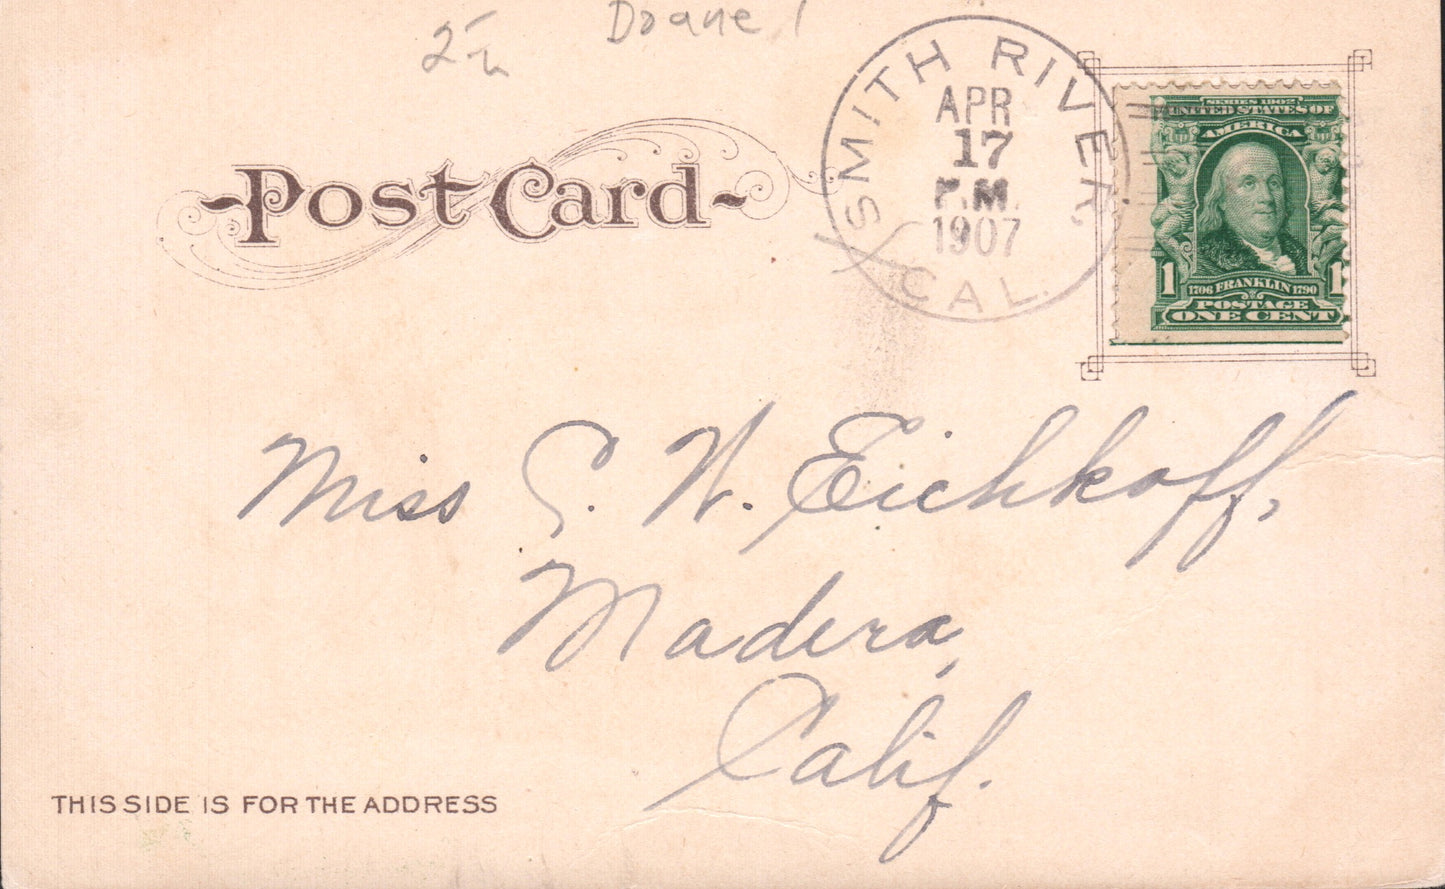 2 50
Doane 1
Post Card
SMITH RIVER,
APR
17
P.M.
1907
CAL.
SERIES 1902
UNITED STATES OF
AMERICA
1 1
1706 FRANKLIN 1790
POSTAGE
ONE CENT
Miss C. W. Eichhoff,
Madera,
Calif.
THIS SIDE IS FOR THE ADDRESS